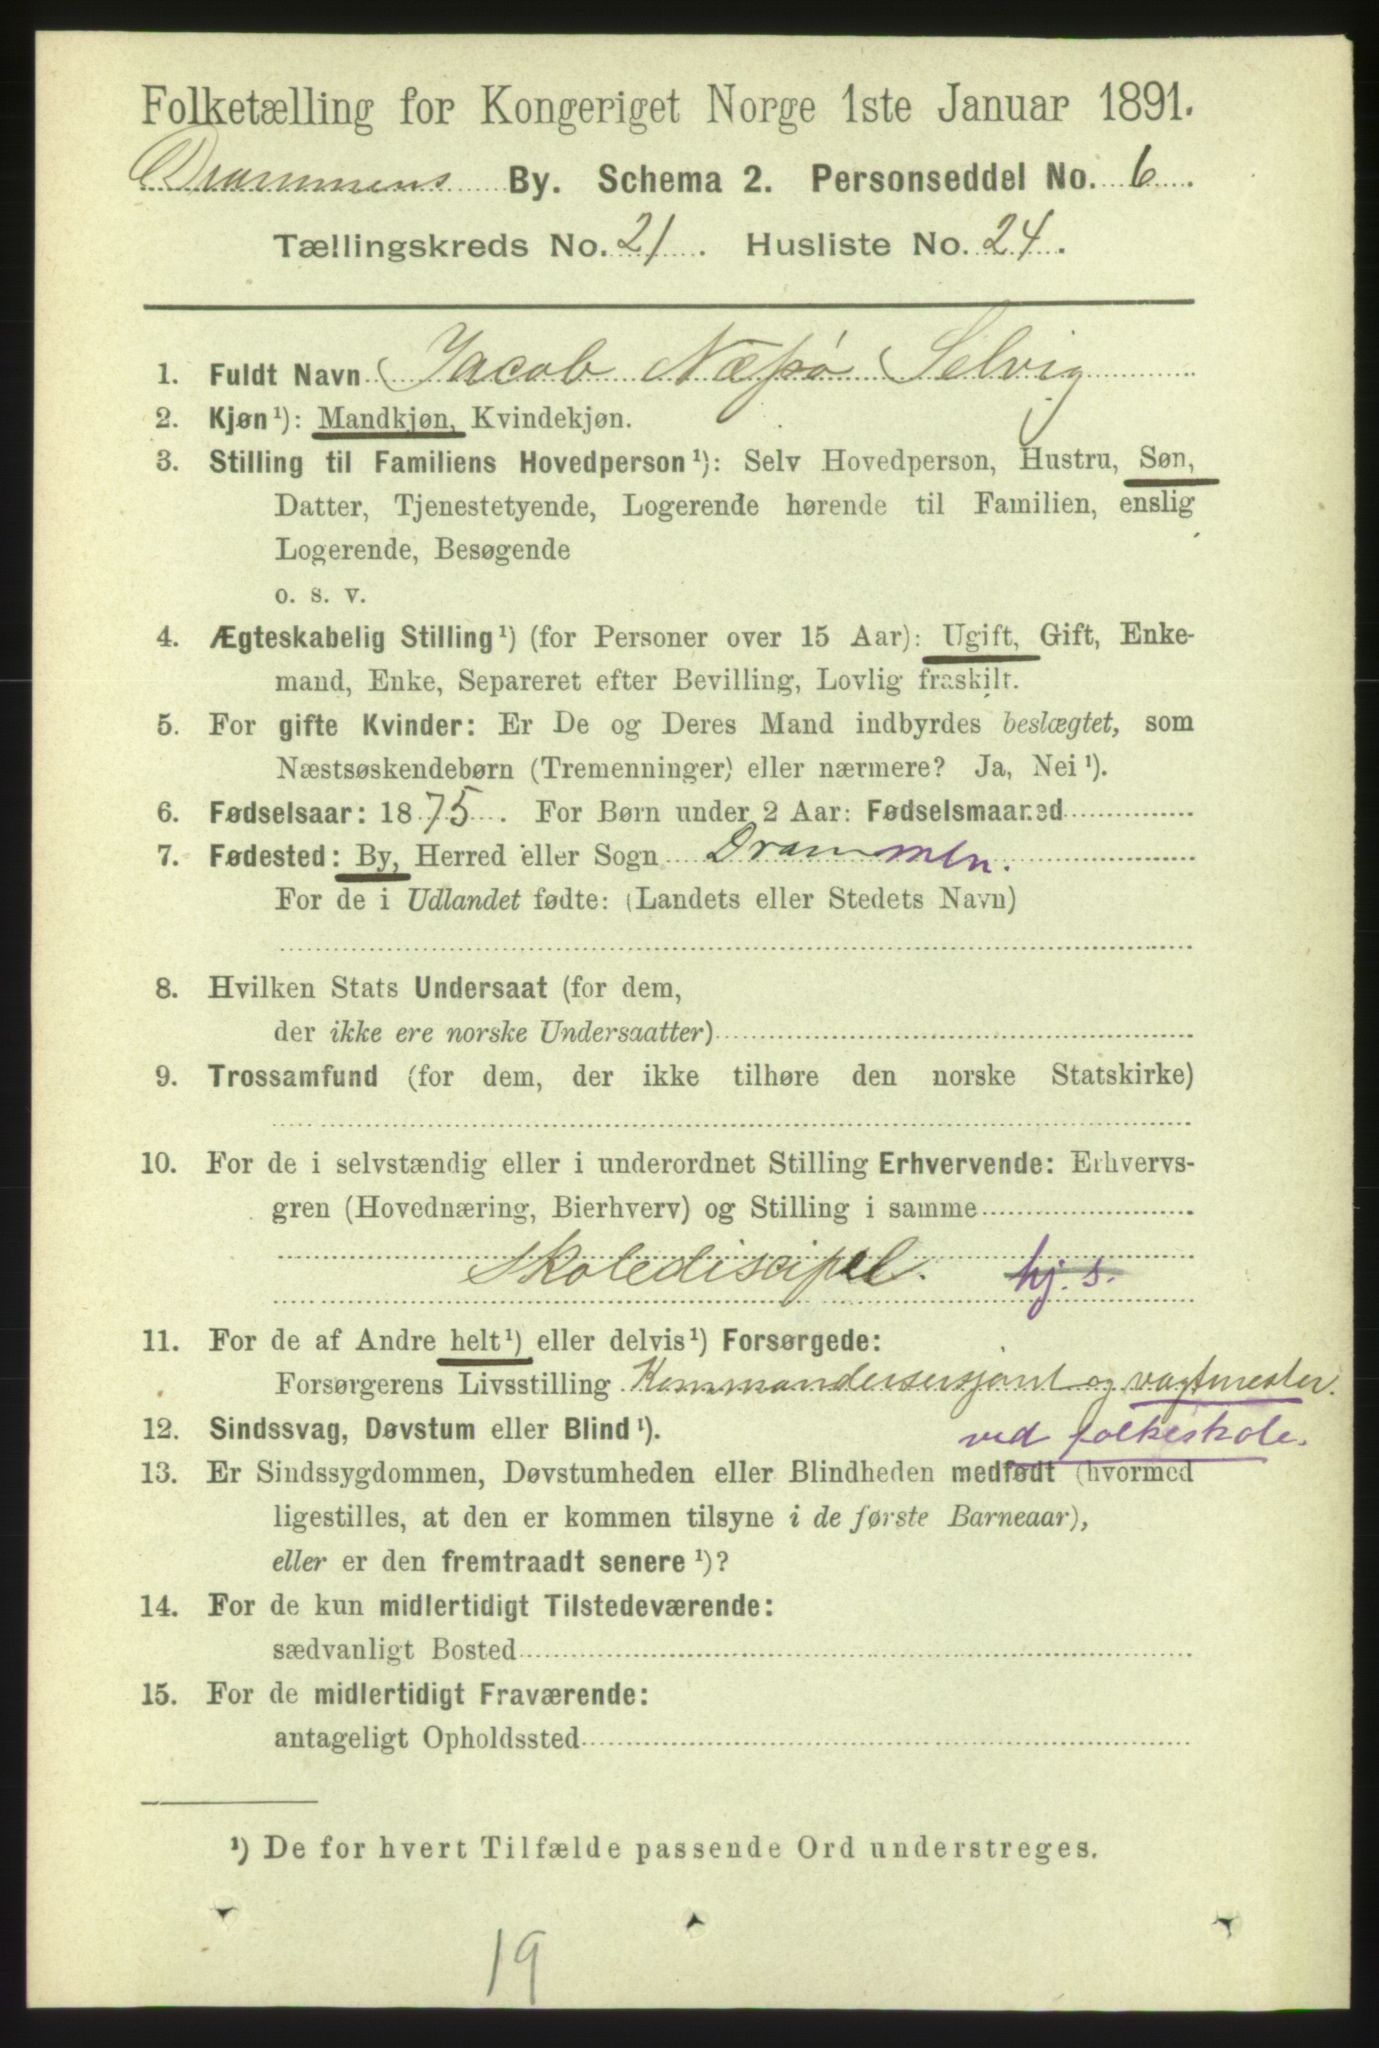 Folketælling for Kongeriget Norge 1ste Januar 1891.
Drammens By. Schema 2. Personseddel No. 6.
Tællingskreds No. 21. Husliste No. 24.
1. Fuldt Navn Jacob Næsø Selvig
2. Kjøn¹): Mandkjøn, Kvindekjøn.
3. Stilling til Familiens Hovedperson¹): Selv Hovedperson, Hustru, Søn,
Datter, Tjenestetyende, Logerende hørende til Familien, enslig
Logerende, Besøgende
o. s. v.
4. Ægteskabelig Stilling¹) (for Personer over 15 Aar): Ugift, Gift, Enke-
mand, Enke, Separeret efter Bevilling, Lovlig fraskilt.
5. For gifte Kvinder: Er De og Deres Mand indbyrdes beslægtet, som
Næstsøskendebørn (Tremenninger) eller nærmere? Ja, Nei¹).
6. Fødselsaar: 1875. For Børn under 2 Aar: Fødselsmaaned
7. Fødested: By, Herred eller Sogn Drammen.
For de i Udlandet fødte: (Landets eller Stedets Navn)
8. Hvilken Stats Undersaat (for dem,
der ikke ere norske Undersaatter)
9. Trossamfund (for dem, der ikke tilhøre den norske Statskirke)
10. For de i selvstændig eller i underordnet Stilling Erhvervende: Erhvervs-
gren (Hovednæring, Bierhverv) og Stilling i samme
Skolediscipel. hj. s.
11. For de af Andre helt¹) eller delvis¹) Forsørgede:
Forsørgerens Livsstilling Kommandersersjant og vagtmester.
12. Sindssvag, Døvstum eller Blind¹). ved folkeskole.
13. Er Sindssygdommen, Døvstumheden eller Blindheden medfødt (hvormed
ligestilles, at den er kommen tilsyne i de første Barneaar),
eller er den fremtraadt senere¹)?
14. For de kun midlertidigt Tilstedeværende:
sædvanligt Bosted
15. For de midlertidigt Fraværende:
antageligt Opholdssted
¹) De for hvert Tilfælde passende Ord understreges.
19